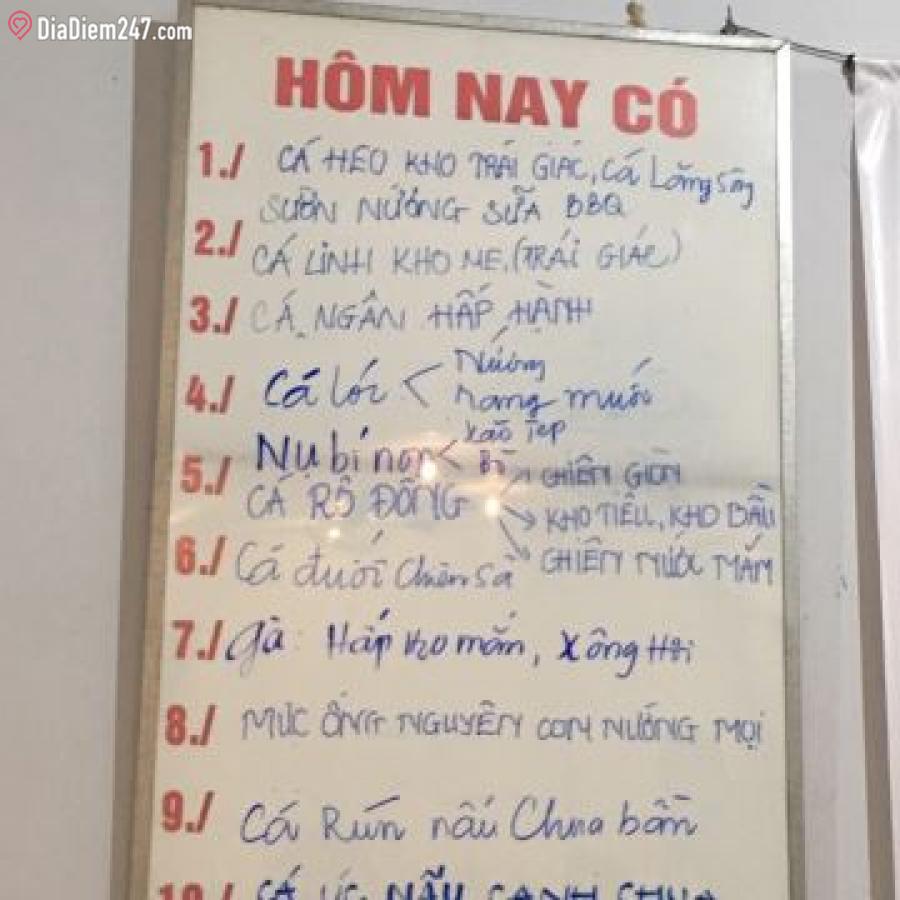 DiaDiem247.com
HÔM NAY CÓ
1./ CÁ HEO KHO TRÁI GIÁC, Cá Lăng Sông
SƯỜN NƯỚNG SỮA BBQ
2./ CÁ LINH KHO ME, (TRÁI GIÁC)
3./ CÁ NGÂN HẤP HÀNH
4./ Cá lóc < Nướng
rang muối
5./ Nụ bí < Xào Tép
Bò
CÁ RÔ ĐỒNG CHIÊN GIÒN
KHO TIÊU, KHO BẦU
CHIÊN NƯỚC MẮM
6./ Cá đuối Chiên Sả
7./ Gà: Hấp mắm, Xông Hơi
8./ MỰC ỐNG NGUYÊN CON NƯỚNG MỌI
9./ Cá Rún nấu Chua bần
10./ CÁ ÚC NẤU CANH CHUA